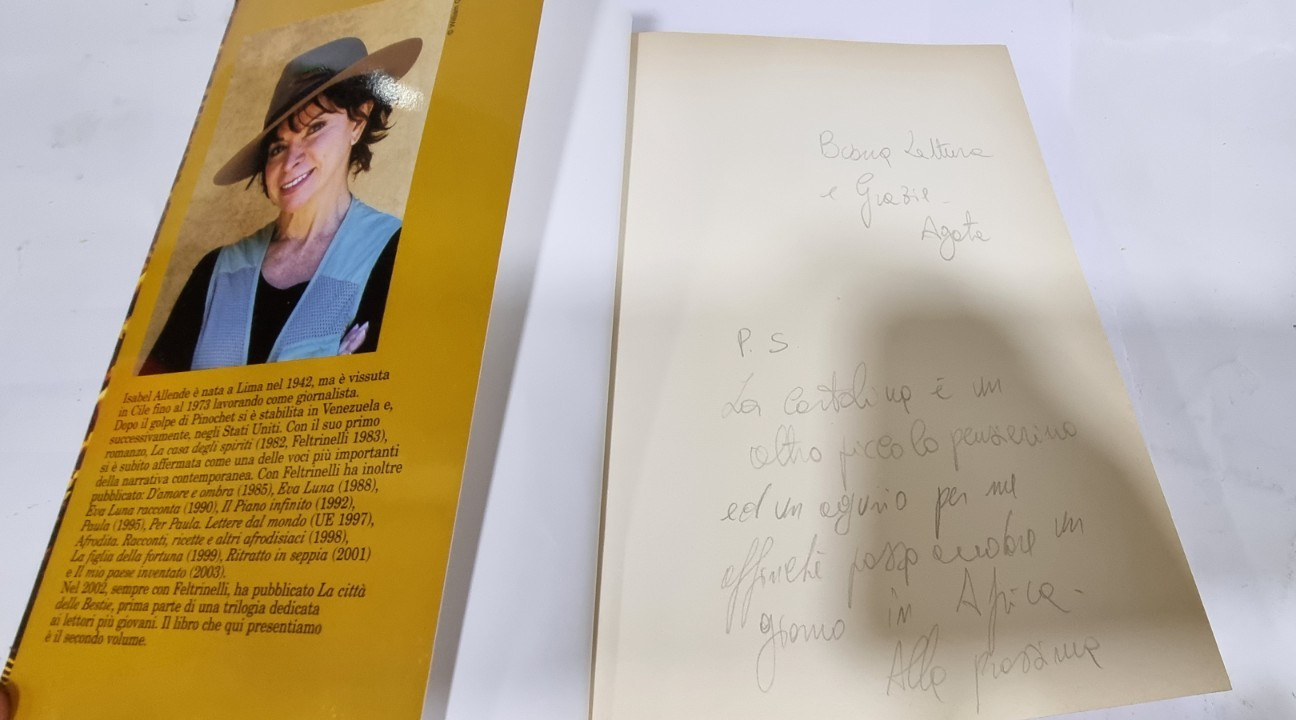 © William
Isabel Allende è nata a Lima nel 1942, ma è vissuta
in Cile fino al 1973 lavorando come giornalista.
Dopo il golpe di Pinochet si è stabilita in Venezuela e,
successivamente, negli Stati Uniti. Con il suo primo
romanzo, La casa degli spiriti (1982, Feltrinelli 1983),
si è subito affermata come una delle voci più importanti
della narrativa contemporanea. Con Feltrinelli ha inoltre
pubblicato: D'amore e ombra (1985), Eva Luna (1988),
Eva Luna racconta (1990), Il Piano infinito (1992),
Paula (1995), Per Paula. Lettere dal mondo (UE 1997),
Afrodita. Racconti, ricette e altri afrodisiaci (1998),
La figlia della fortuna (1999), Ritratto in seppia (2001)
e Il mio paese inventato (2003).
Nel 2002, sempre con Feltrinelli, ha pubblicato La città
delle Bestie, prima parte di una trilogia dedicata
ai lettori più giovani. Il libro che qui presentiamo
è il secondo volume.
Buona Lettura
e Grazie.
Agata
P. S
La cartolina è un
altro piccolo pensierino
ed un augurio per me
affinché possa andare un
giorno in Africa.
Alla prossima